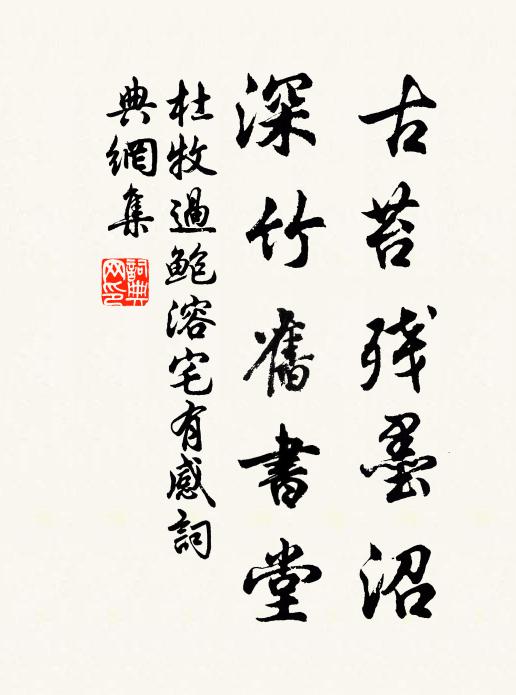 古苔残墨沼
深竹舊書堂
杜牧過鲍溶宅有感詞
典網集
詞典
网印